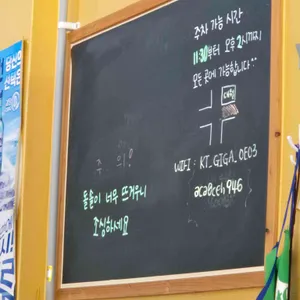 주차 가능 시간
11:30부터 오후 2시까지
모든 곳에 가능합니다^^
WIFI : KT_GIGA_0E03
aca8ceh946
주의!
돌솥이 너무 뜨거우니
조심하세요